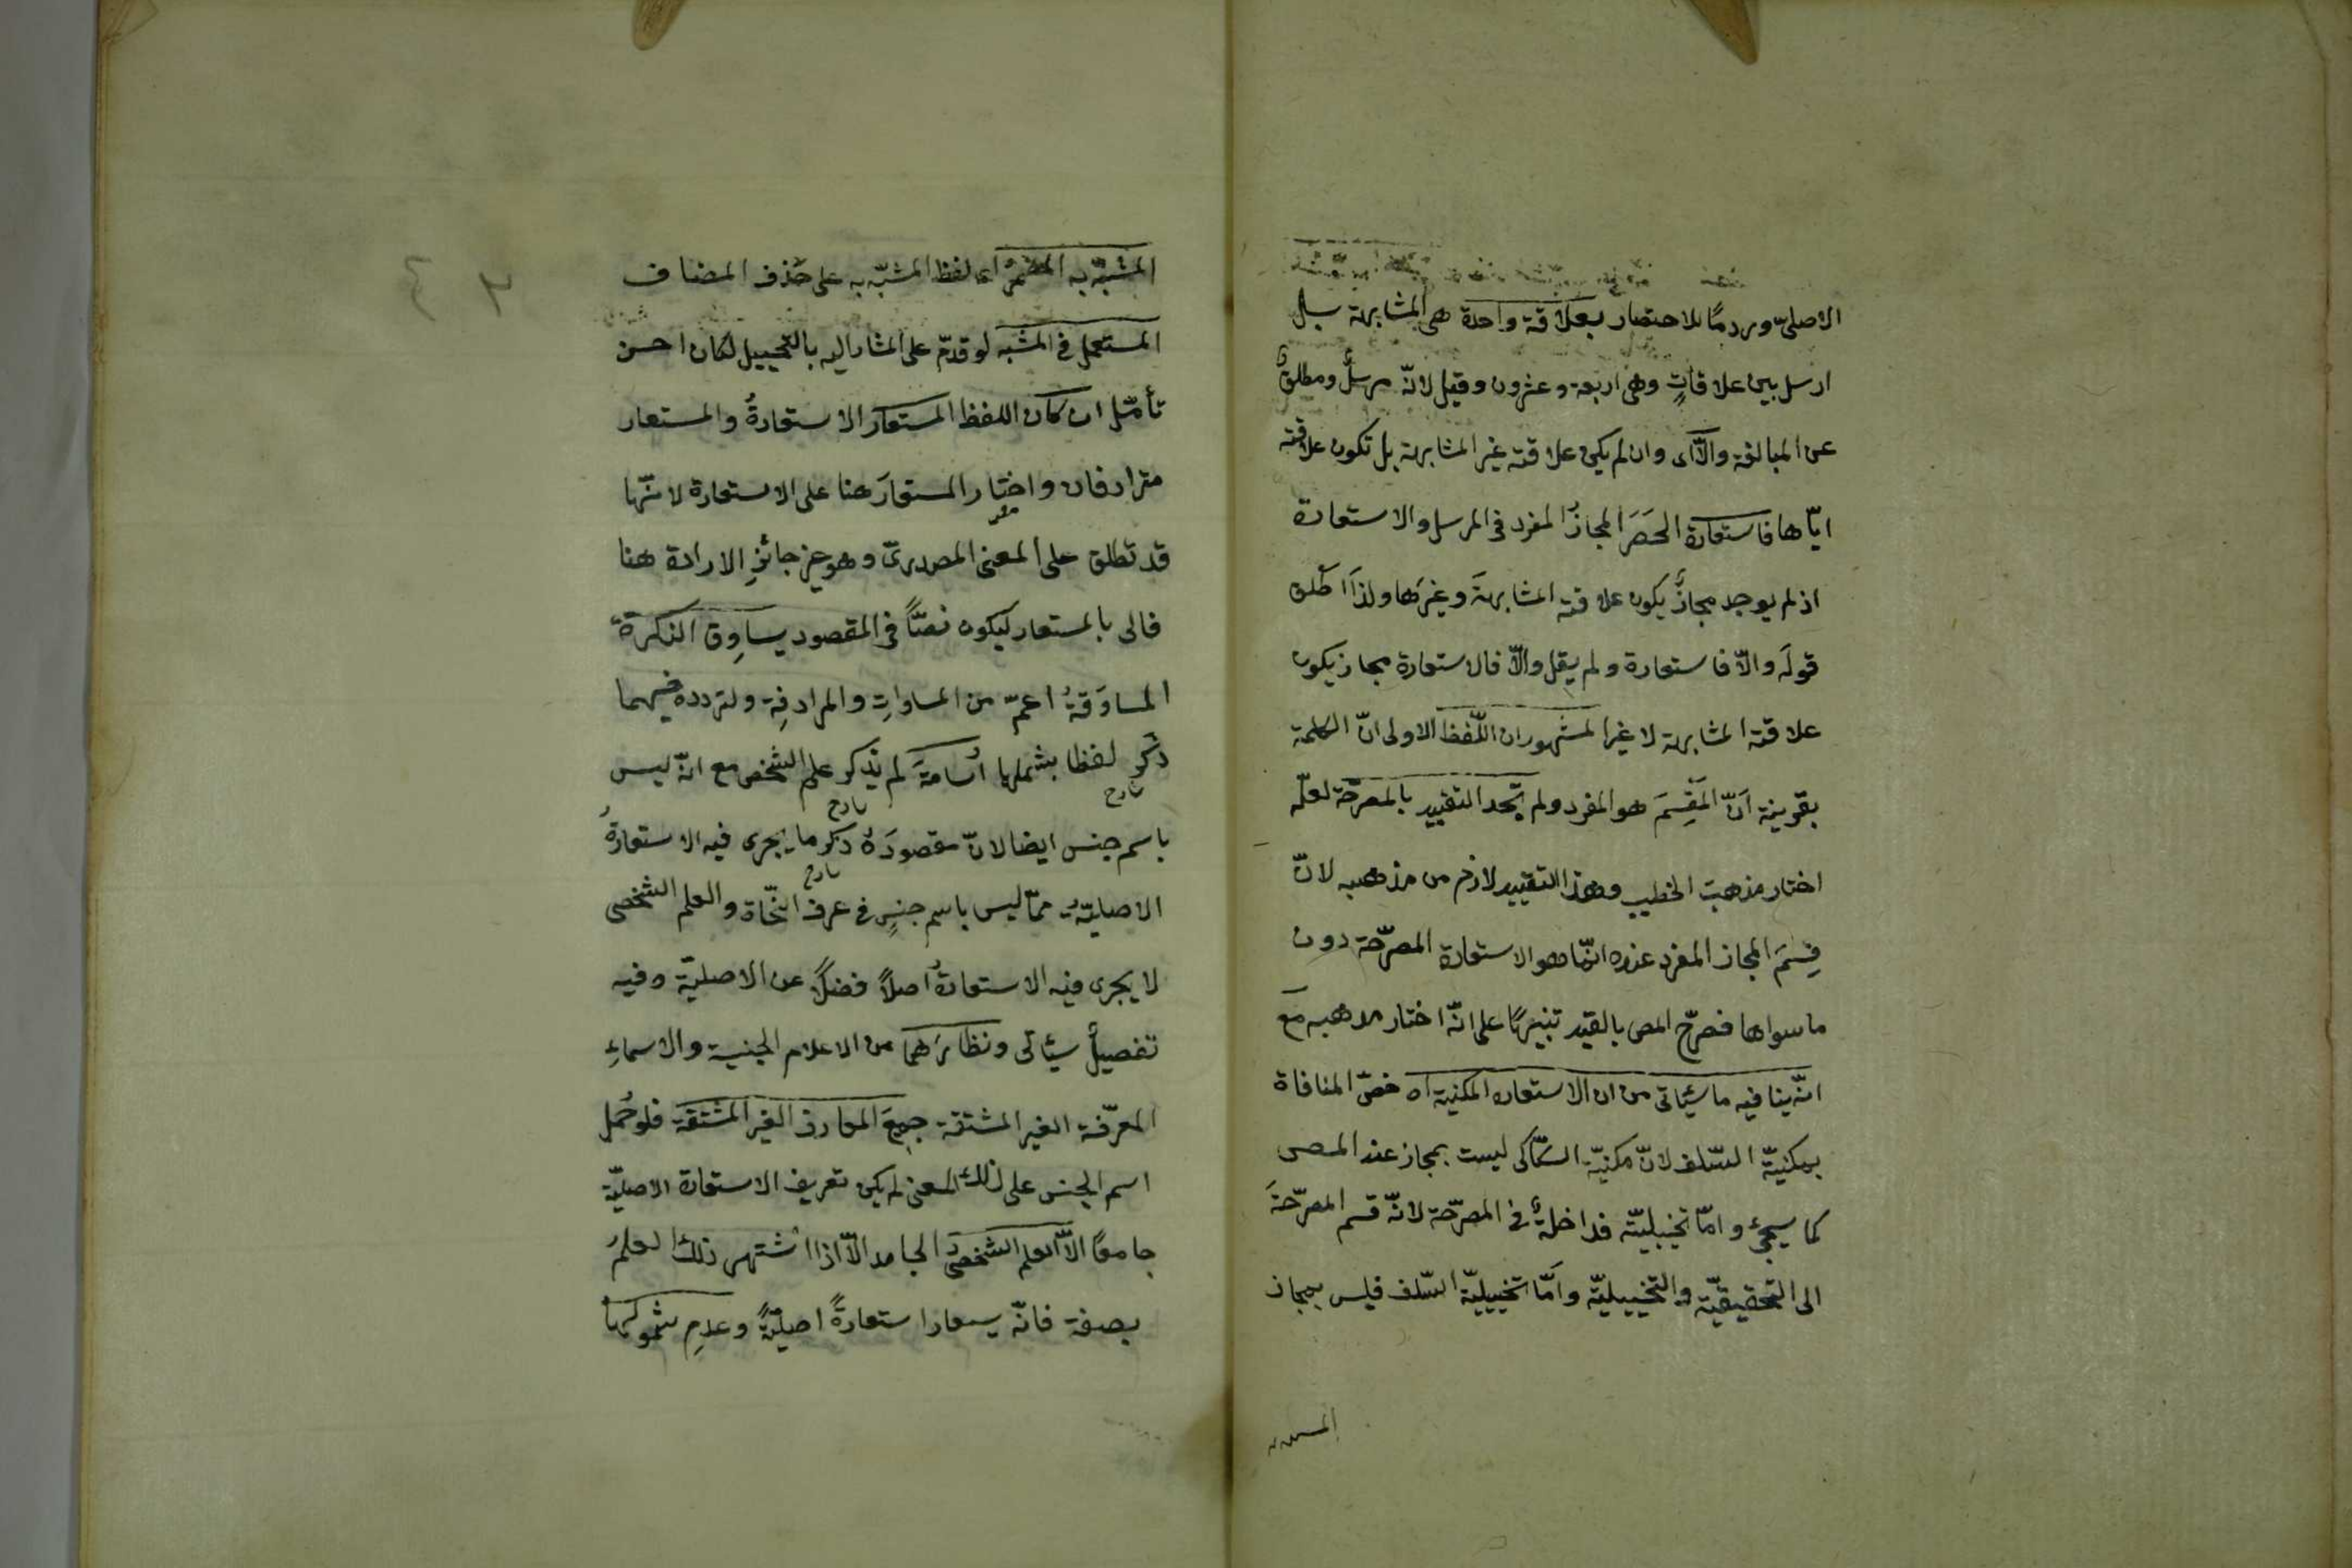 الاصليّ ومردمًا للاحتصار بعلاقة واحدة هى المشابهة بل
ارسل بين علاقاتٍ وهى اربعة وعشرون وقيل لانّه مرسلٌ ومطلقٌ
عن المبالغة والّا اى وان لم يكن علاقته غير المشابهة بل تكون علاقته
ايّاها فاستعارة الحَصَرَ المجازُ المفرد فى المرسل والاستعارة
اذ لم يوجد مجازٌ يكون علاقته المشابهةَ وغيرَها ولذا اطلق
قولَه والّا فاستعارة ولم يقل والّا فالاستعارة مجاز يكون
علاقته المشابهة لا غير المشهور ان اللّفظ الاولى انّ الكلمة
بقرينة انّ المَقْسِمَ هو المفرد ولم يتّحد التقييد بالمصرّحة لعلّه
اختار مذهبَ الخطيب وهذا التقييد لازم من مذهبه لانّ
قِسمَ المجاز المفرد عنده انّما هو الاستعارة المصرّحة دون
ما سواها فصرّح المص بالقيد تنبيهًا على انّه اختار مذهبه مع
انّه ينافيه ما سيأتى من ان الاستعاره المكنية اه خصّ المنافاة
بمكنيّة السّلف لانّ مكنيّة السّكّاكى ليست بمجاز عند المص
كما سيجئ وامّا تخييليّته فداخلةٌ فى المصرّحة لانّه قسم المصرّحةَ
الى التحقيقيّة والتخييليّة وامّا تخييليّة السّلف فليس بمجاز
المشبّه به
المشبّه به المضمر اى لفظ المشبّه به على حذف المضاف
المستعمل فى المشبه لو قدّم على المشار اليه بالتخييل لكان احسن
تأمّل ان كان اللفظ المستعار الاستعارةُ والمستعار
مترادفان واختار المستعارَ هنا على الاستعارة لانّها
قد تطلق على المعنى المصدرىّ وهو غير جائزِ الارادة هنا
فاتى بالمستعار ليكون نصّاً فى المقصود يساوِق النكرة
المساوَقةُ اعمّ من المساواتِ والمرادفِة ولتردده فيهما
ذكر لفظا يشملها اُسامةَ لم يذكر علم الشخص مع انّه ليس
باسم جنس ايضا لانّ مقصودَهُ ذكر ما يجرى فيه الاستعارةُ
الاصليّةُ ممّا ليس باسم جنسٍ فى عرف النّحاة والعلم الشخصى
لا يجرى فيه الاستعارةُ اصلاً فضلاً عن الاصليّة وفيه
تفصيلٌ سيأتى ونظائرَهما من الاعلام الجنسية والاسماءِ
المعرّفة الغير المشتقة جميعَ المعارف الغير المشتقة فلو حُمل
اسم الجنس على ذلك المعنى لم يكن تعريف الاستعارة الاصليّة
جامعًا الّا العلم الشخصىّ الجامد الّا اذا اشتهر ذلك العلمُ
بصفة فانّه يستعار استعارةً اصليّةً وعدمِ شمولها